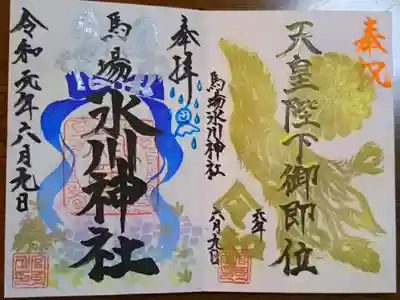 奉祝
天皇陛下御即位
馬場氷川神社
元年
六月元日
奉拝
馬場
氷川神社
令和元年六月元日